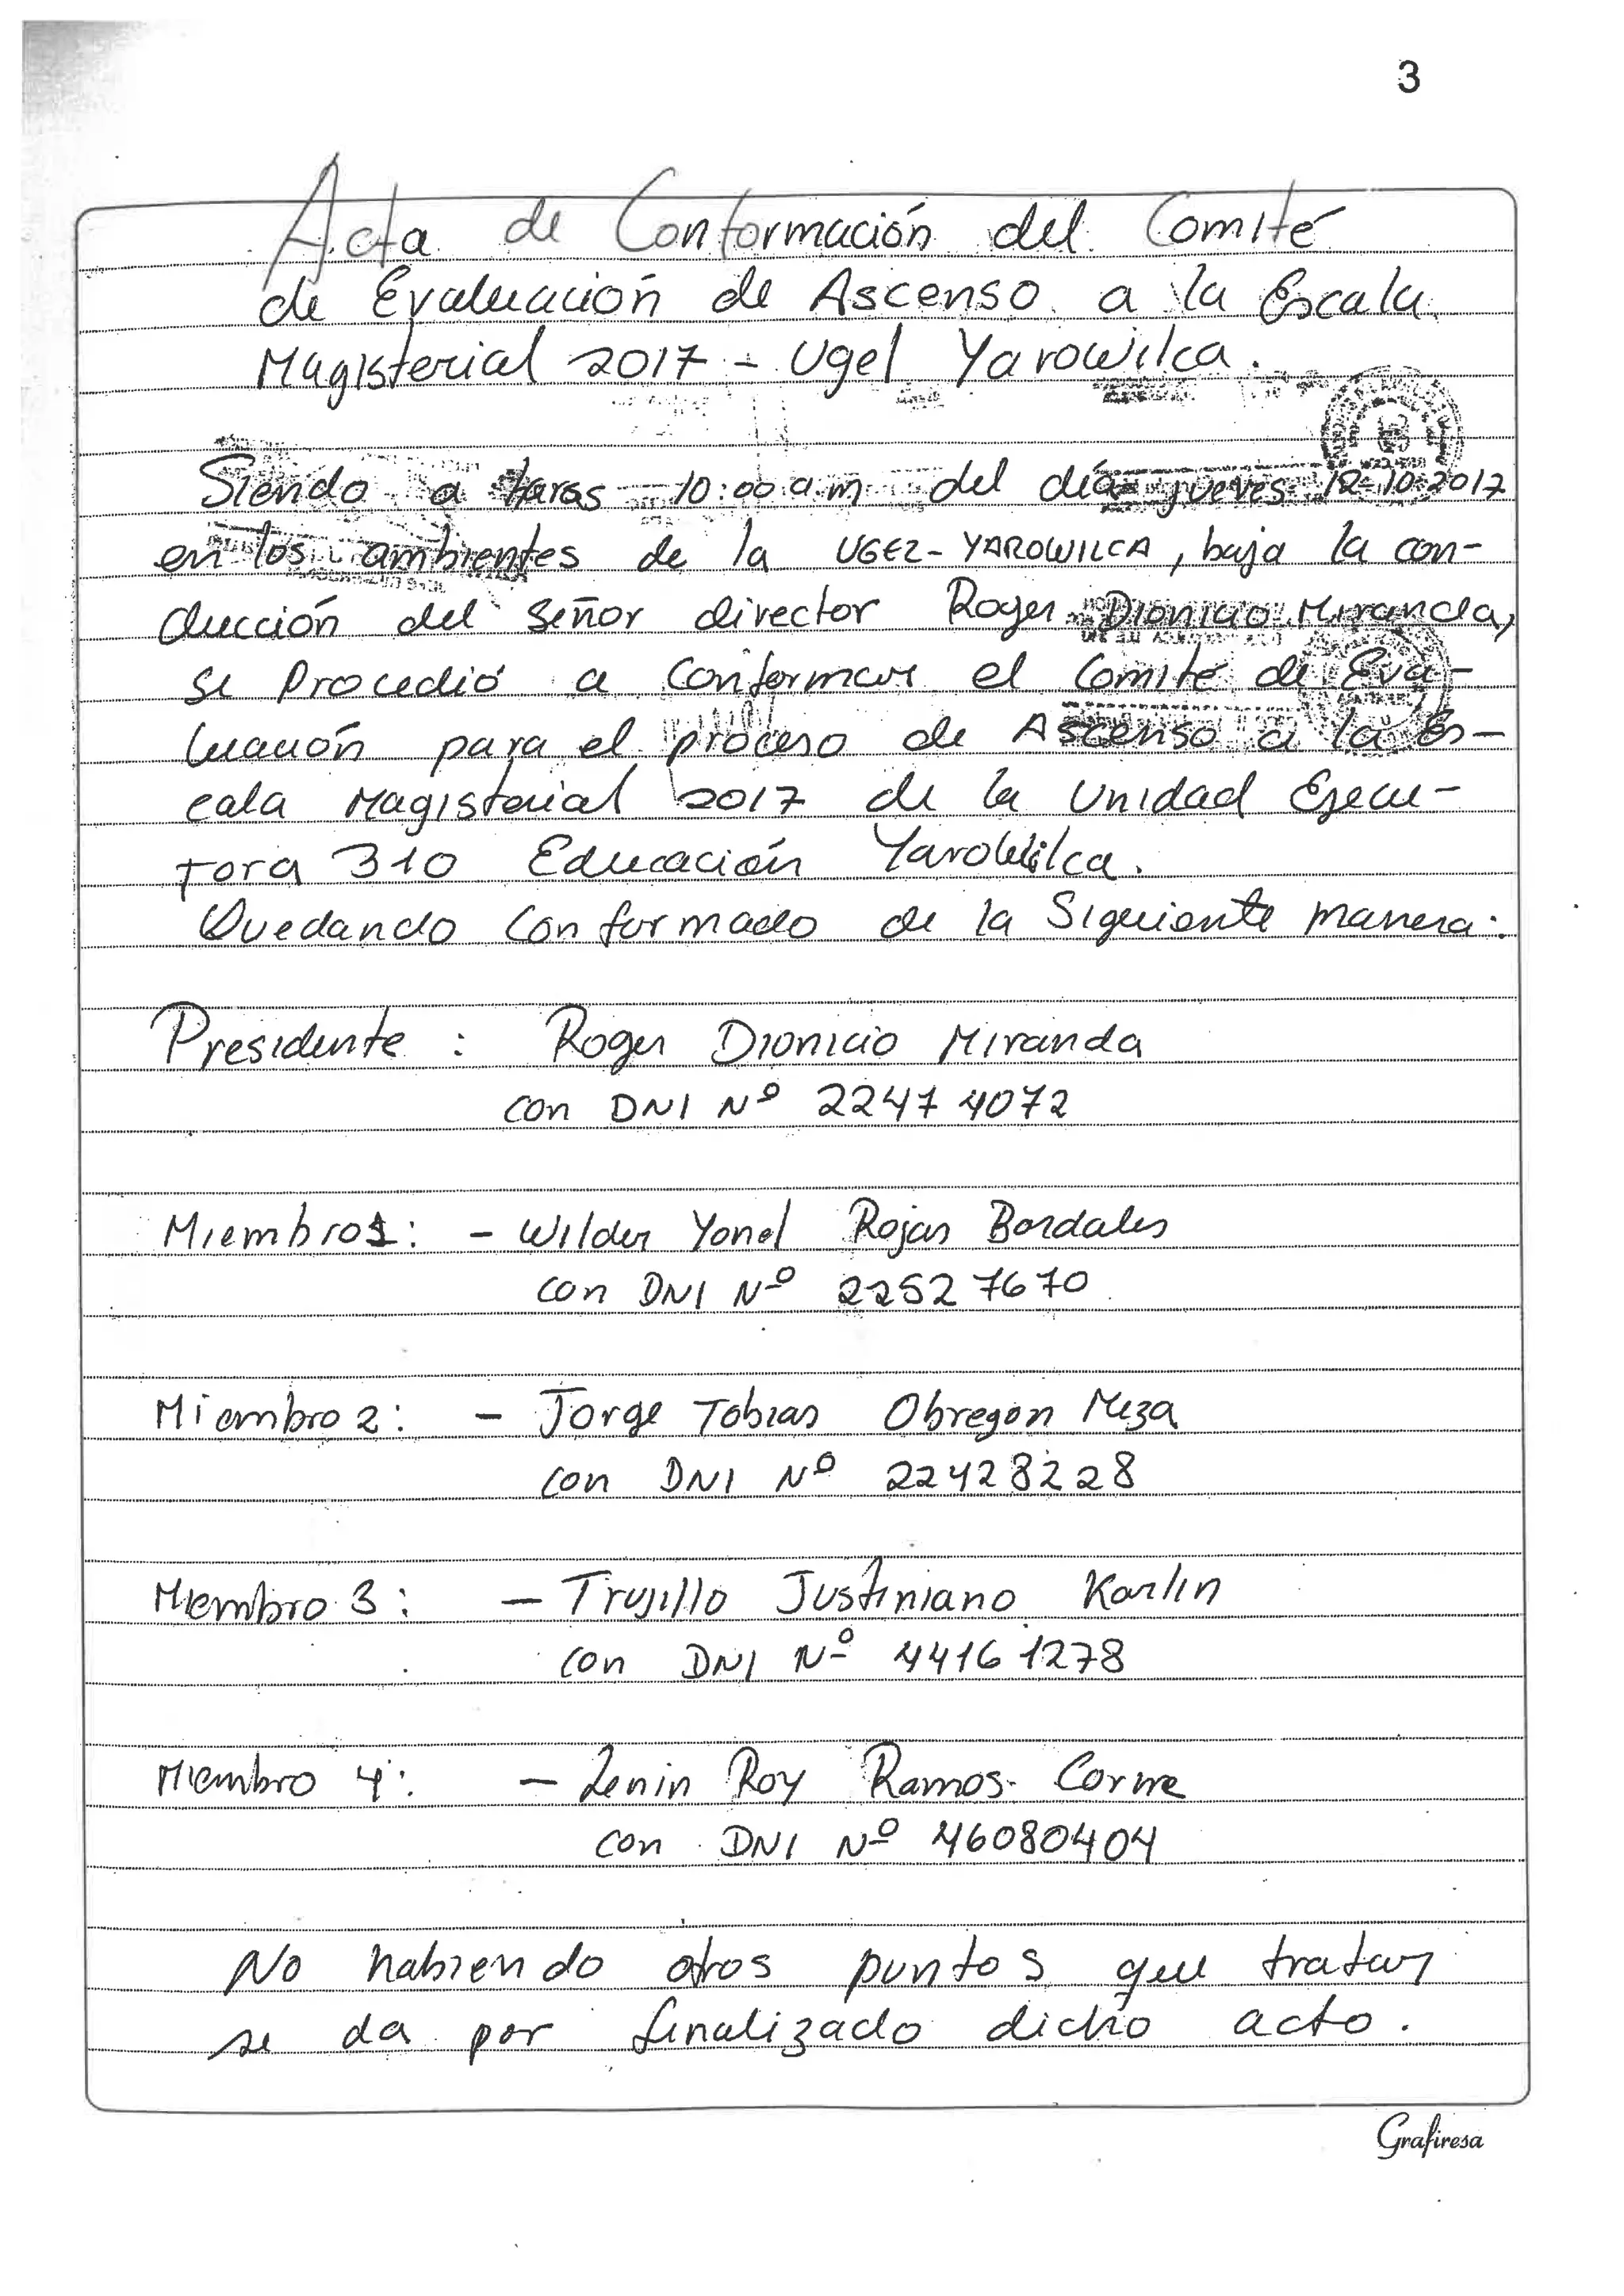 3
Acta de Conformación del Comité
de Evaluación de Ascenso a la Escala
Magisterial 2017 - Ugel Yarowilca.
Siendo a horas 10:00 a.m del día jueves 12-10-2017
en los ambientes de la UGEL-YAROWILCA, baja la con-
ducción del señor director Roger Dionicio Miranda,
se Procedió a Conformar el Comité de Eva-
luación para el proceso de Ascenso a la Es-
cala Magisterial 2017 de la Unidad Ejecu-
tora 310 Educación Yarowilca.
Quedando Conformado de la Siguiente manera:
Presidente : Roger Dionicio Miranda
con DNI Nº 22474072
Miembro1: - Wilder Yonel Rojas Bordales
con DNI Nº 22527670
Miembro 2: - Jorge Tobias Obregon Meza
con DNI Nº 22428228
Miembro 3: - Trujillo Justiniano Karlin
con DNI Nº 44161278
Miembro 4: - Lenin Roy Ramos
con DNI Nº 46080404
No habiendo otros puntos que tratar
se da por finalizado dicho acto.
Grafiresa